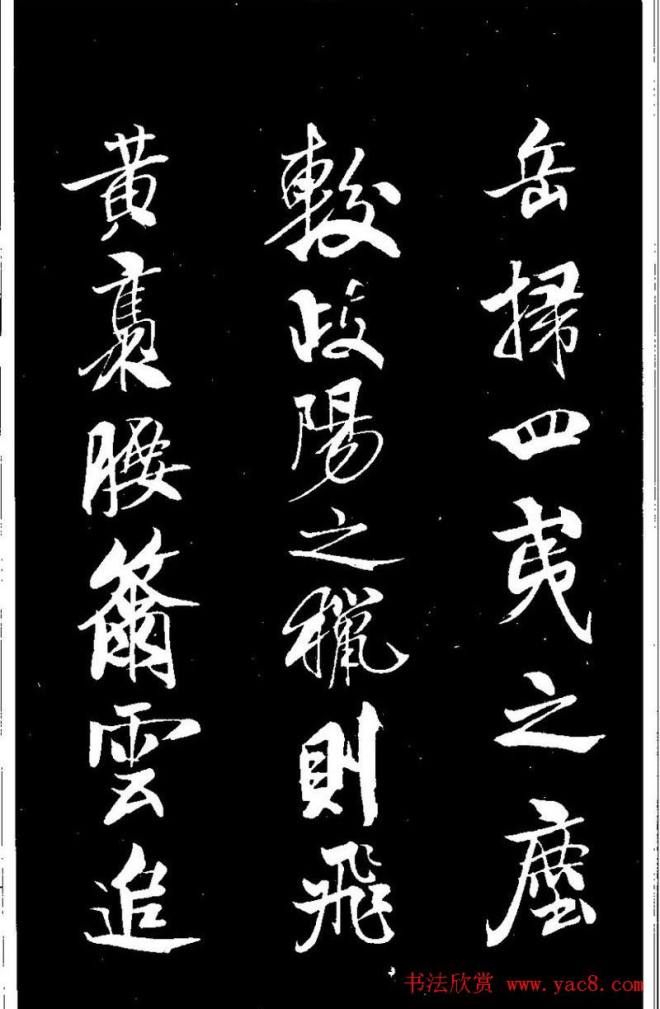 岳掃四夷之塵
較歧陽之獵則飛
黄褭腰籋雲追
书法欣赏 www.yac8.com